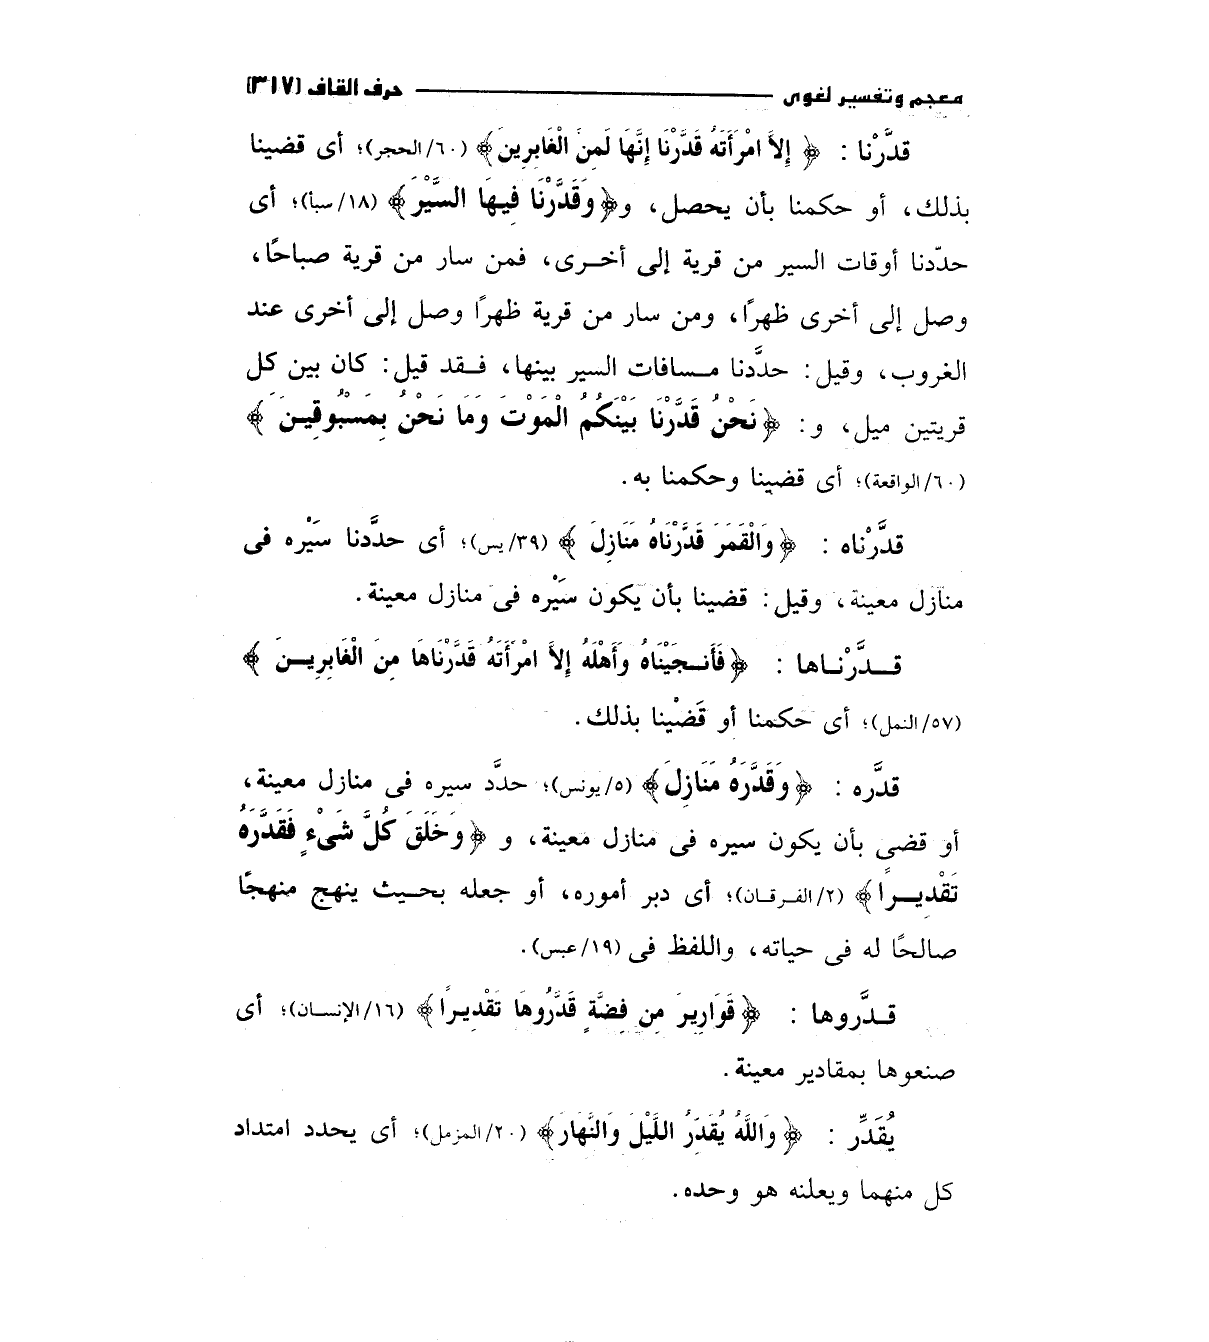 معجم وتفسير لغوى ـــــــــ حرف القاف [٣١٧]
قدَّرْنا : ﴿ إِلاَّ امْرَأَتَهُ قَدَّرْنَا إِنَّهَا لَمِنَ الْغَابِرِينَ﴾ (٦٠/الحجر)؛ أى قضينا
بذلك، أو حكمنا بأن يحصل، و﴿وَقَدَّرْنَا فِيهَا السَّيْرَ﴾ (١٨/سبأ)؛ أى
حدّدنا أوقات السير من قرية إلى أخرى، فمن سار من قرية صباحًا،
وصل إلى أخرى ظهرًا، ومن سار من قرية ظهرًا وصل إلى أخرى عند
الغروب، وقيل: حدَّدنا مسافات السير بينها، فقد قيل: كان بين كل
قريتين ميل، و: ﴿نَحْنُ قَدَّرْنَا بَيْنَكُمُ الْمَوْتَ وَمَا نَحْنُ بِمَسْبُوقِينَ ﴾
(٦٠/الواقعة)؛ أى قضينا وحكمنا به.
قدَّرْناه : ﴿وَالْقَمَرَ قَدَّرْنَاهُ مَنَازِلَ ﴾ (٣٩/يس)؛ أى حدَّدنا سَيْره فى
منازل معينة، وقيل: قضينا بأن يكون سَيْره فى منازل معينة.
قـدَّرْنـاها : ﴿فَأَنجَيْنَاهُ وَأَهْلَهُ إِلاَّ امْرَأَتَهُ قَدَّرْنَاهَا مِنَ الْغَابِرِينَ ﴾
(٥٧/النمل)؛ أى حكمنا أو قَضْينا بذلك.
قدَّره : ﴿وَقَدَّرَهُ مَنَازِلَ﴾ (٥/يونس)؛ حدَّد سيره فى منازل معينة،
أو قضى بأن يكون سيره فى منازل معينة، و ﴿وَخَلَقَ كُلَّ شَىْءٍ فَقَدَّرَهُ
تَقْدِيـرًا﴾ (٢/الفرقان)؛ أى دبر أموره، أو جعله بحيث ينهج منهجًا
صالحًا له فى حياته، واللفظ فى (١٩/عبس).
قـدَّروها : ﴿قَوَارِيرَ مِن فِضَّةٍ قَدَّرُوهَا تَقْدِيرًا﴾ (١٦/الإنسان)؛ أى
صنعوها بمقادير معينة.
يُقَدِّر : ﴿وَاللَّهُ يُقَدِّرُ اللَّيْلَ وَالنَّهَارَ﴾ (٢٠/المزمل)؛ أى يحدد امتداد
كل منهما ويعلنه هو وحده.